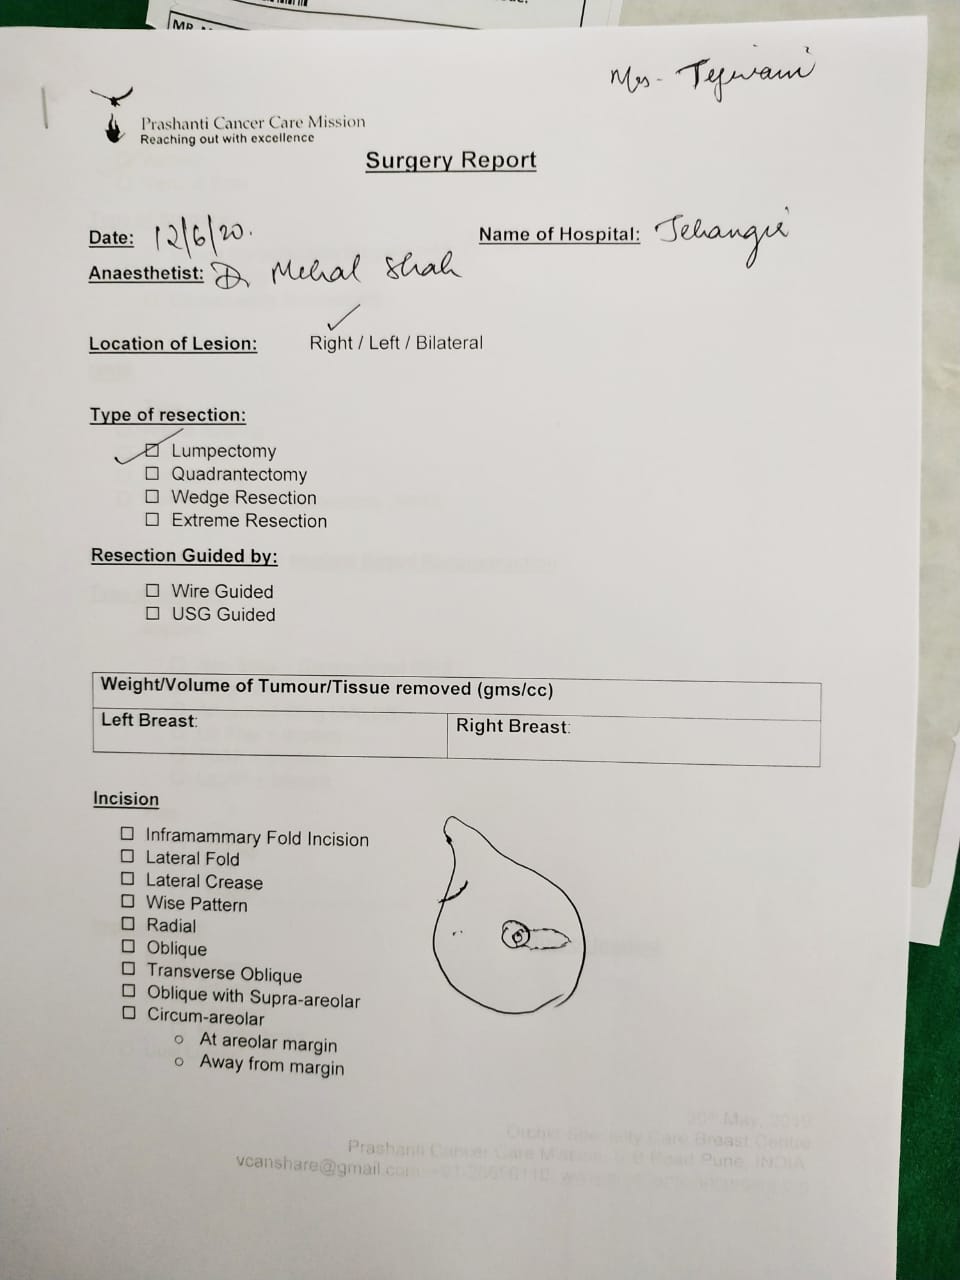 MR.
Mrs - Tejwani
Prashanti Cancer Care Mission
Reaching out with excellence
Surgery Report
Date: 12/6/20.
Name of Hospital: Jehangir
Anaesthetist: Dr Mehal Shah
Location of Lesion: Right / Left / Bilateral
Type of resection:
☐ Lumpectomy
☐ Quadrantectomy
☐ Wedge Resection
☐ Extreme Resection
Resection Guided by:
☐ Wire Guided
☐ USG Guided
Weight/Volume of Tumour/Tissue removed (gms/cc)
Left Breast:
Right Breast:
Incision
☐ Inframammary Fold Incision
☐ Lateral Fold
☐ Lateral Crease
☐ Wise Pattern
☐ Radial
☐ Oblique
☐ Transverse Oblique
☐ Oblique with Supra-areolar
☐ Circum-areolar
o At areolar margin
o Away from margin
May, 2019
Orchid Specialty Care Breast Centre
Prashanti Cancer Care Mission, Road Pune, INDIA
vcanshare@gmail.com